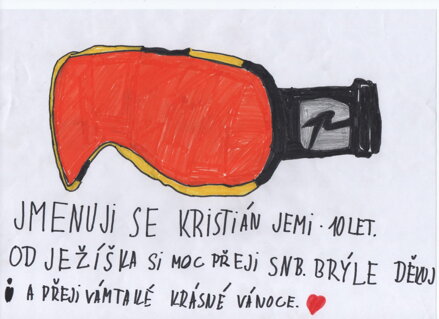 JMENUJI SE KRISTIÁN JEMI · 10 LET.
OD JEŽÍŠKA SI MOC PŘEJI SNB. BRÝLE DĚKUJ
i A PŘEJI VÁMTAKÉ KRÁSNÉ VÁNOCE.